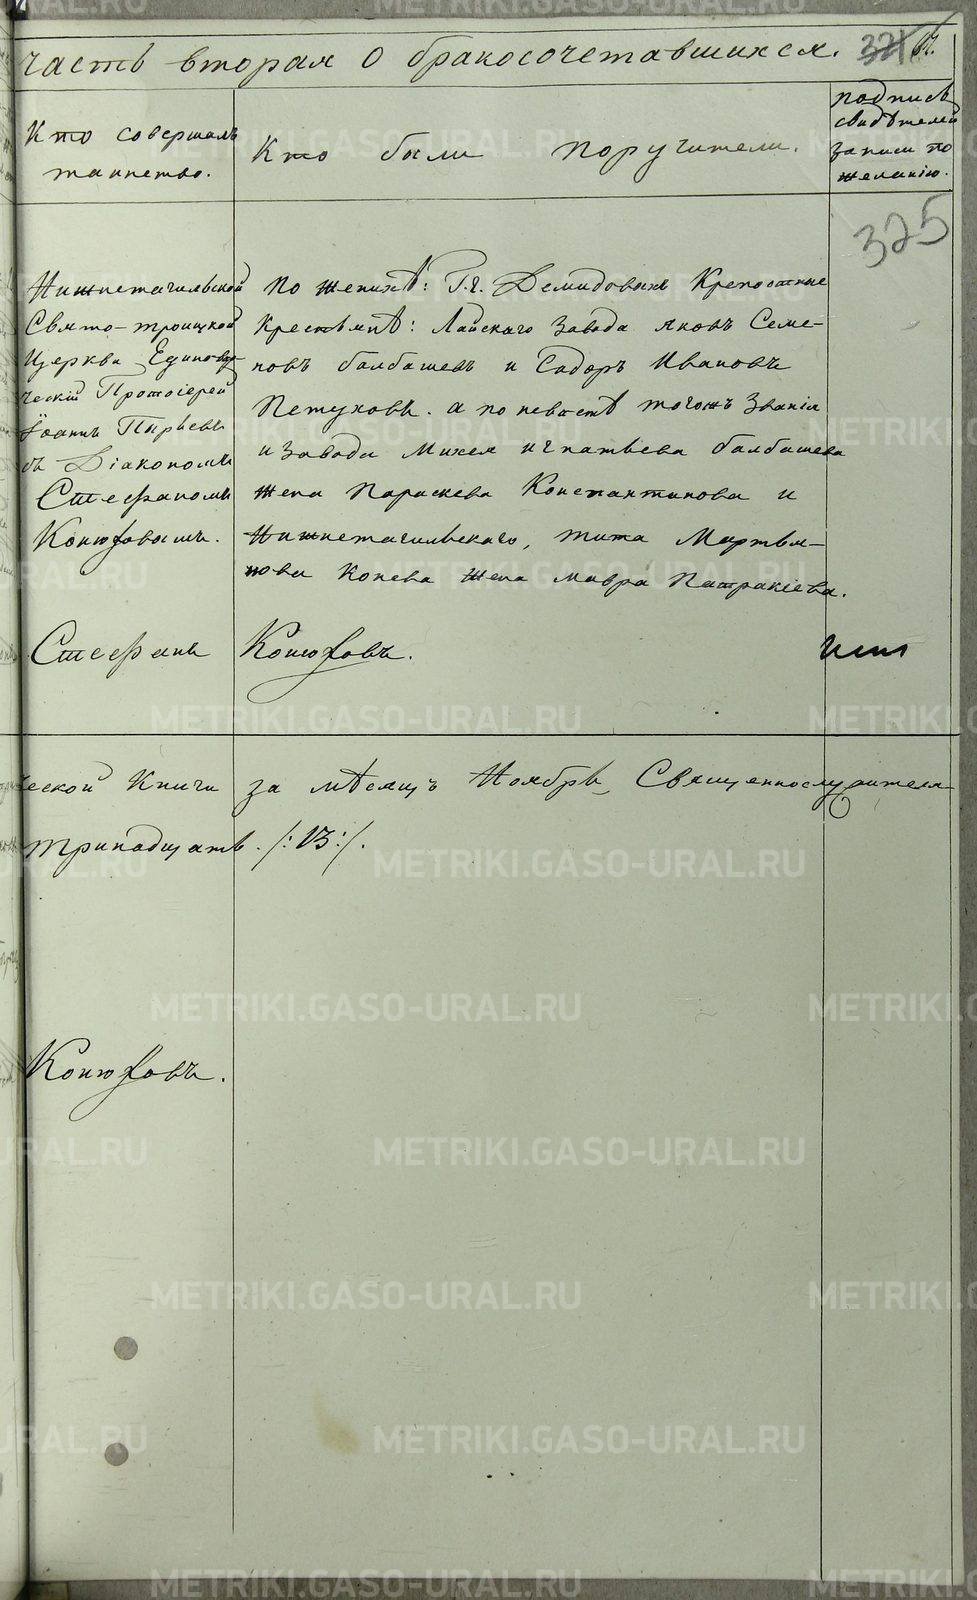 часть вторая о бракосочетавшихся.
Кто совершалъ
таинство.
Кто были поручители.
подпись
свидѣтелей
записи по
желанію.
325
Нижнетагильской
Свято-троицкой
Церкви Единовѣр
ческій Протоіерей
Іоаннъ Пырьевъ
съ Діакономъ
Стефаномъ
Конюховымъ.
По женихѣ: Г.г. Демидовыхъ Крепостные
Крестьянѣ: Лайскаго Завода Яковъ Семе-
новъ балбашевъ и Сидоръ Ивановъ
Петуховъ. а по невѣстѣ тогожъ Званія
и Завода Михея игнатьева балбашева
жена Параскева Константинова и
Нижнетагильскаго, тита Мартья-
нова Копева жена мавра Патракіева.
Стефанъ Конюховъ.
ческой Книги за мѣсяцъ Ноябрь Священнослужители
тринадцать. /:13:/.
Конюховъ.
METRIKI.GASO-URAL.RU